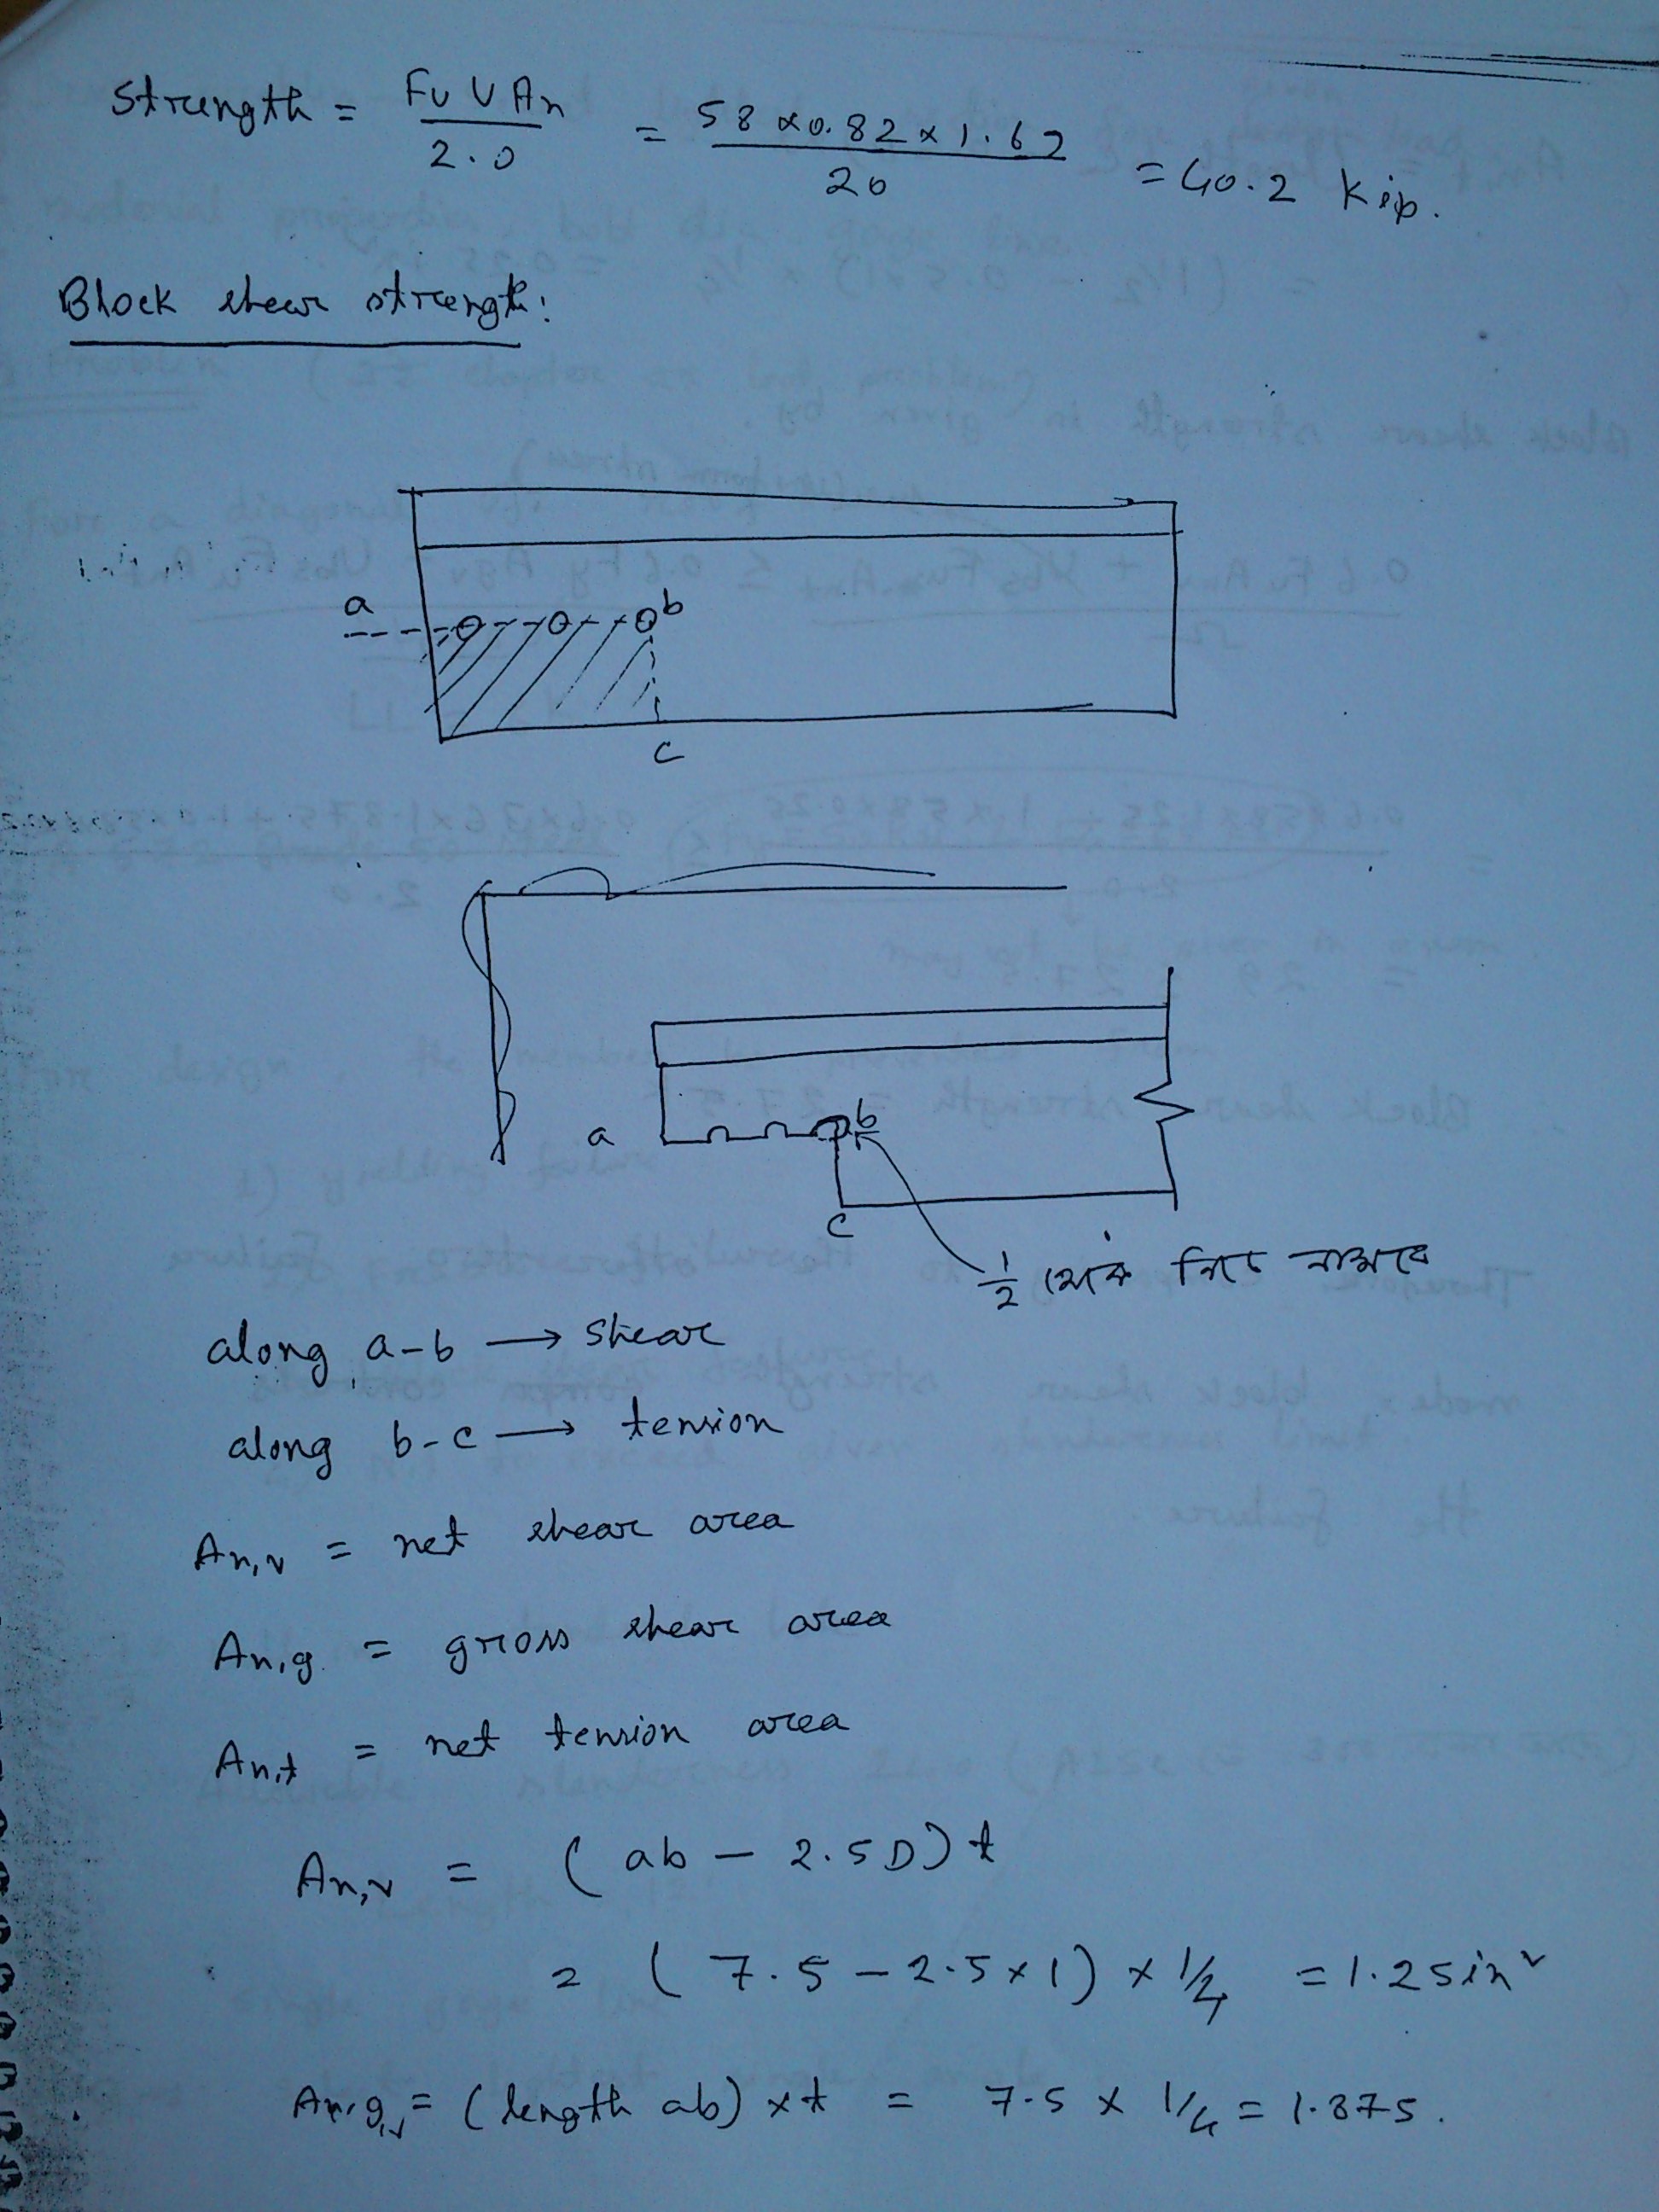 Strength = Fu U An / 2.0 = 58 x 0.82 x 1.62 / 20 = 40.2 kip.
Block shear strength:
a b
c
a b
c
1/2 থেকে নিচে নামবে
along a-b → shear
along b-c → tension
An,v = net shear area
An,g = gross shear area
An,t = net tension area
An,v = (ab - 2.5D) t
= (7.5 - 2.5 x 1) x 1/4 = 1.25 in²
An,g,v = (length ab) x t = 7.5 x 1/4 = 1.875.